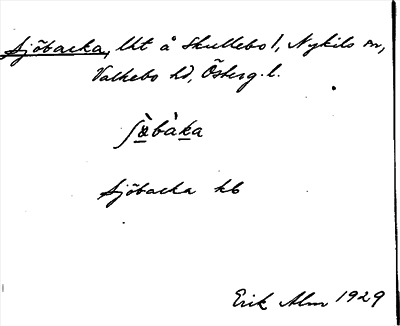 Sjöbacka, lht å Skullebo 1, Nykils sn,
Valkebo hd, Östergl.
Sjöbacka kb
Erik Alm 1929